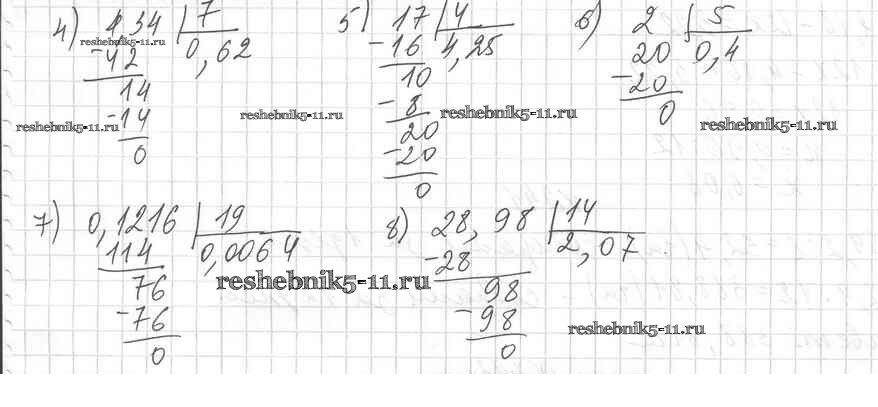 4) 4,34 | 7
-42 0,62
14
-14
0
5) 17 | 4
-16 4,25
10
-8
20
-20
0
6) 2 | 5
20 0,4
-20
0
7) 0,1216 | 19
114 0,0064
76
-76
0
8) 28,98 | 14
-28 2,07
98
-98
0
reshebnik5-11.ru
reshebnik5-11.ru
reshebnik5-11.ru
reshebnik5-11.ru
reshebnik5-11.ru
reshebnik5-11.ru
reshebnik5-11.ru